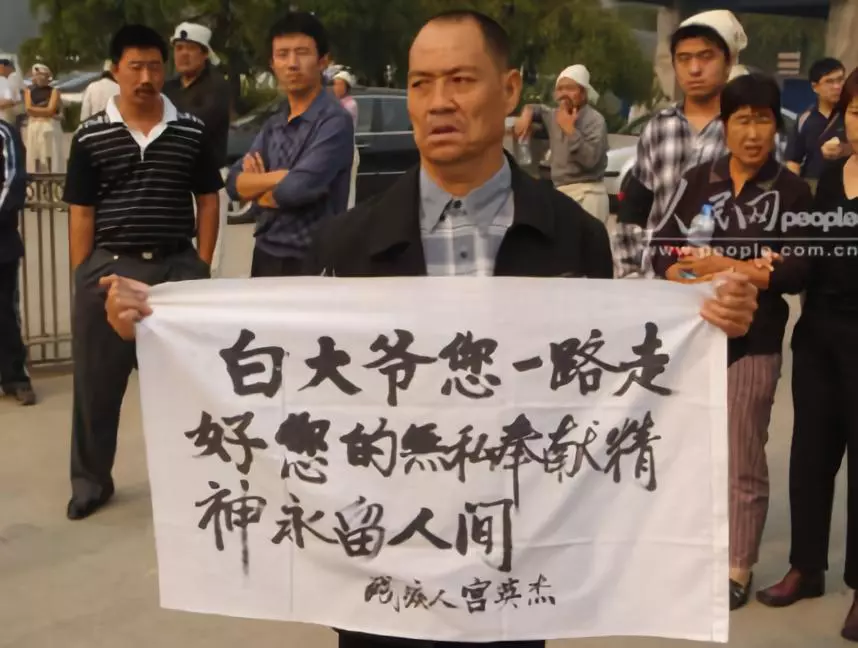 白大爷您一路走
好您的無私奉献精
神永留人间
残疾人宫英杰
人民网 people
www.people.com.cn